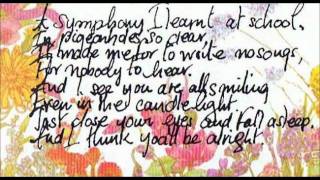 A Symphony I learnt at school,
so clear,
It made me for to write no songs,
For nobody to hear.
And I see you are all smiling
Even in the candle light.
Just close your eyes and fall asleep,
And I think you'll be alright.